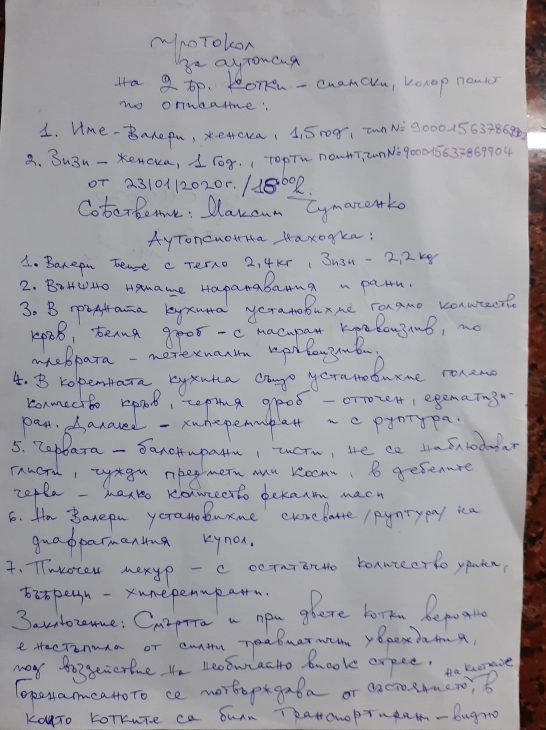 Протокол
за аутопсия
на 2 бр. котки – сиамски, колор поинт
по описание:
1. Име – Валери, женска, 1,5 год, чип №
2. Зизи – женска, 1 год., торти поинт, чип № 900015637869904
от 23/01/2020г. / 15 00 h.
Собственик: Максим Чумаченко
Аутопсионна находка:
1. Валери беше с тегло 2,4 кг, Зизи – 2,2 kg
2. Външно нямаше наранявания и рани.
3. В гръдната кухина установихме голямо количество
кръв, белия дроб – с масиран кръвоизлив, по
плеврата – петехиални кръвоизливи.
4. В коремната кухина също установихме голямо
количество кръв, черния дроб – оточен, едематизи-
ран. Далака – хиперемиран и с руптура.
5. Червата – балонирани, чисти, не се наблюдават
глисти, чужди предмети или косми, в дебелите
черва – малко количество фекални маси
6. На Валери установихме скъсване /руптура/ на
диафрагмалния купол.
7. Пикочен мехур – с остатъчно количество урина,
бъбреци – хиперемирани.
Заключение: Смъртта и при двете котки вероятно
е настъпила от силни травматични увреждания,
под въздействие на необичайно висок стрес.
Горенаписаното се потвърждава от състоянието на клетките, в
които котките са били транспортирани – видно